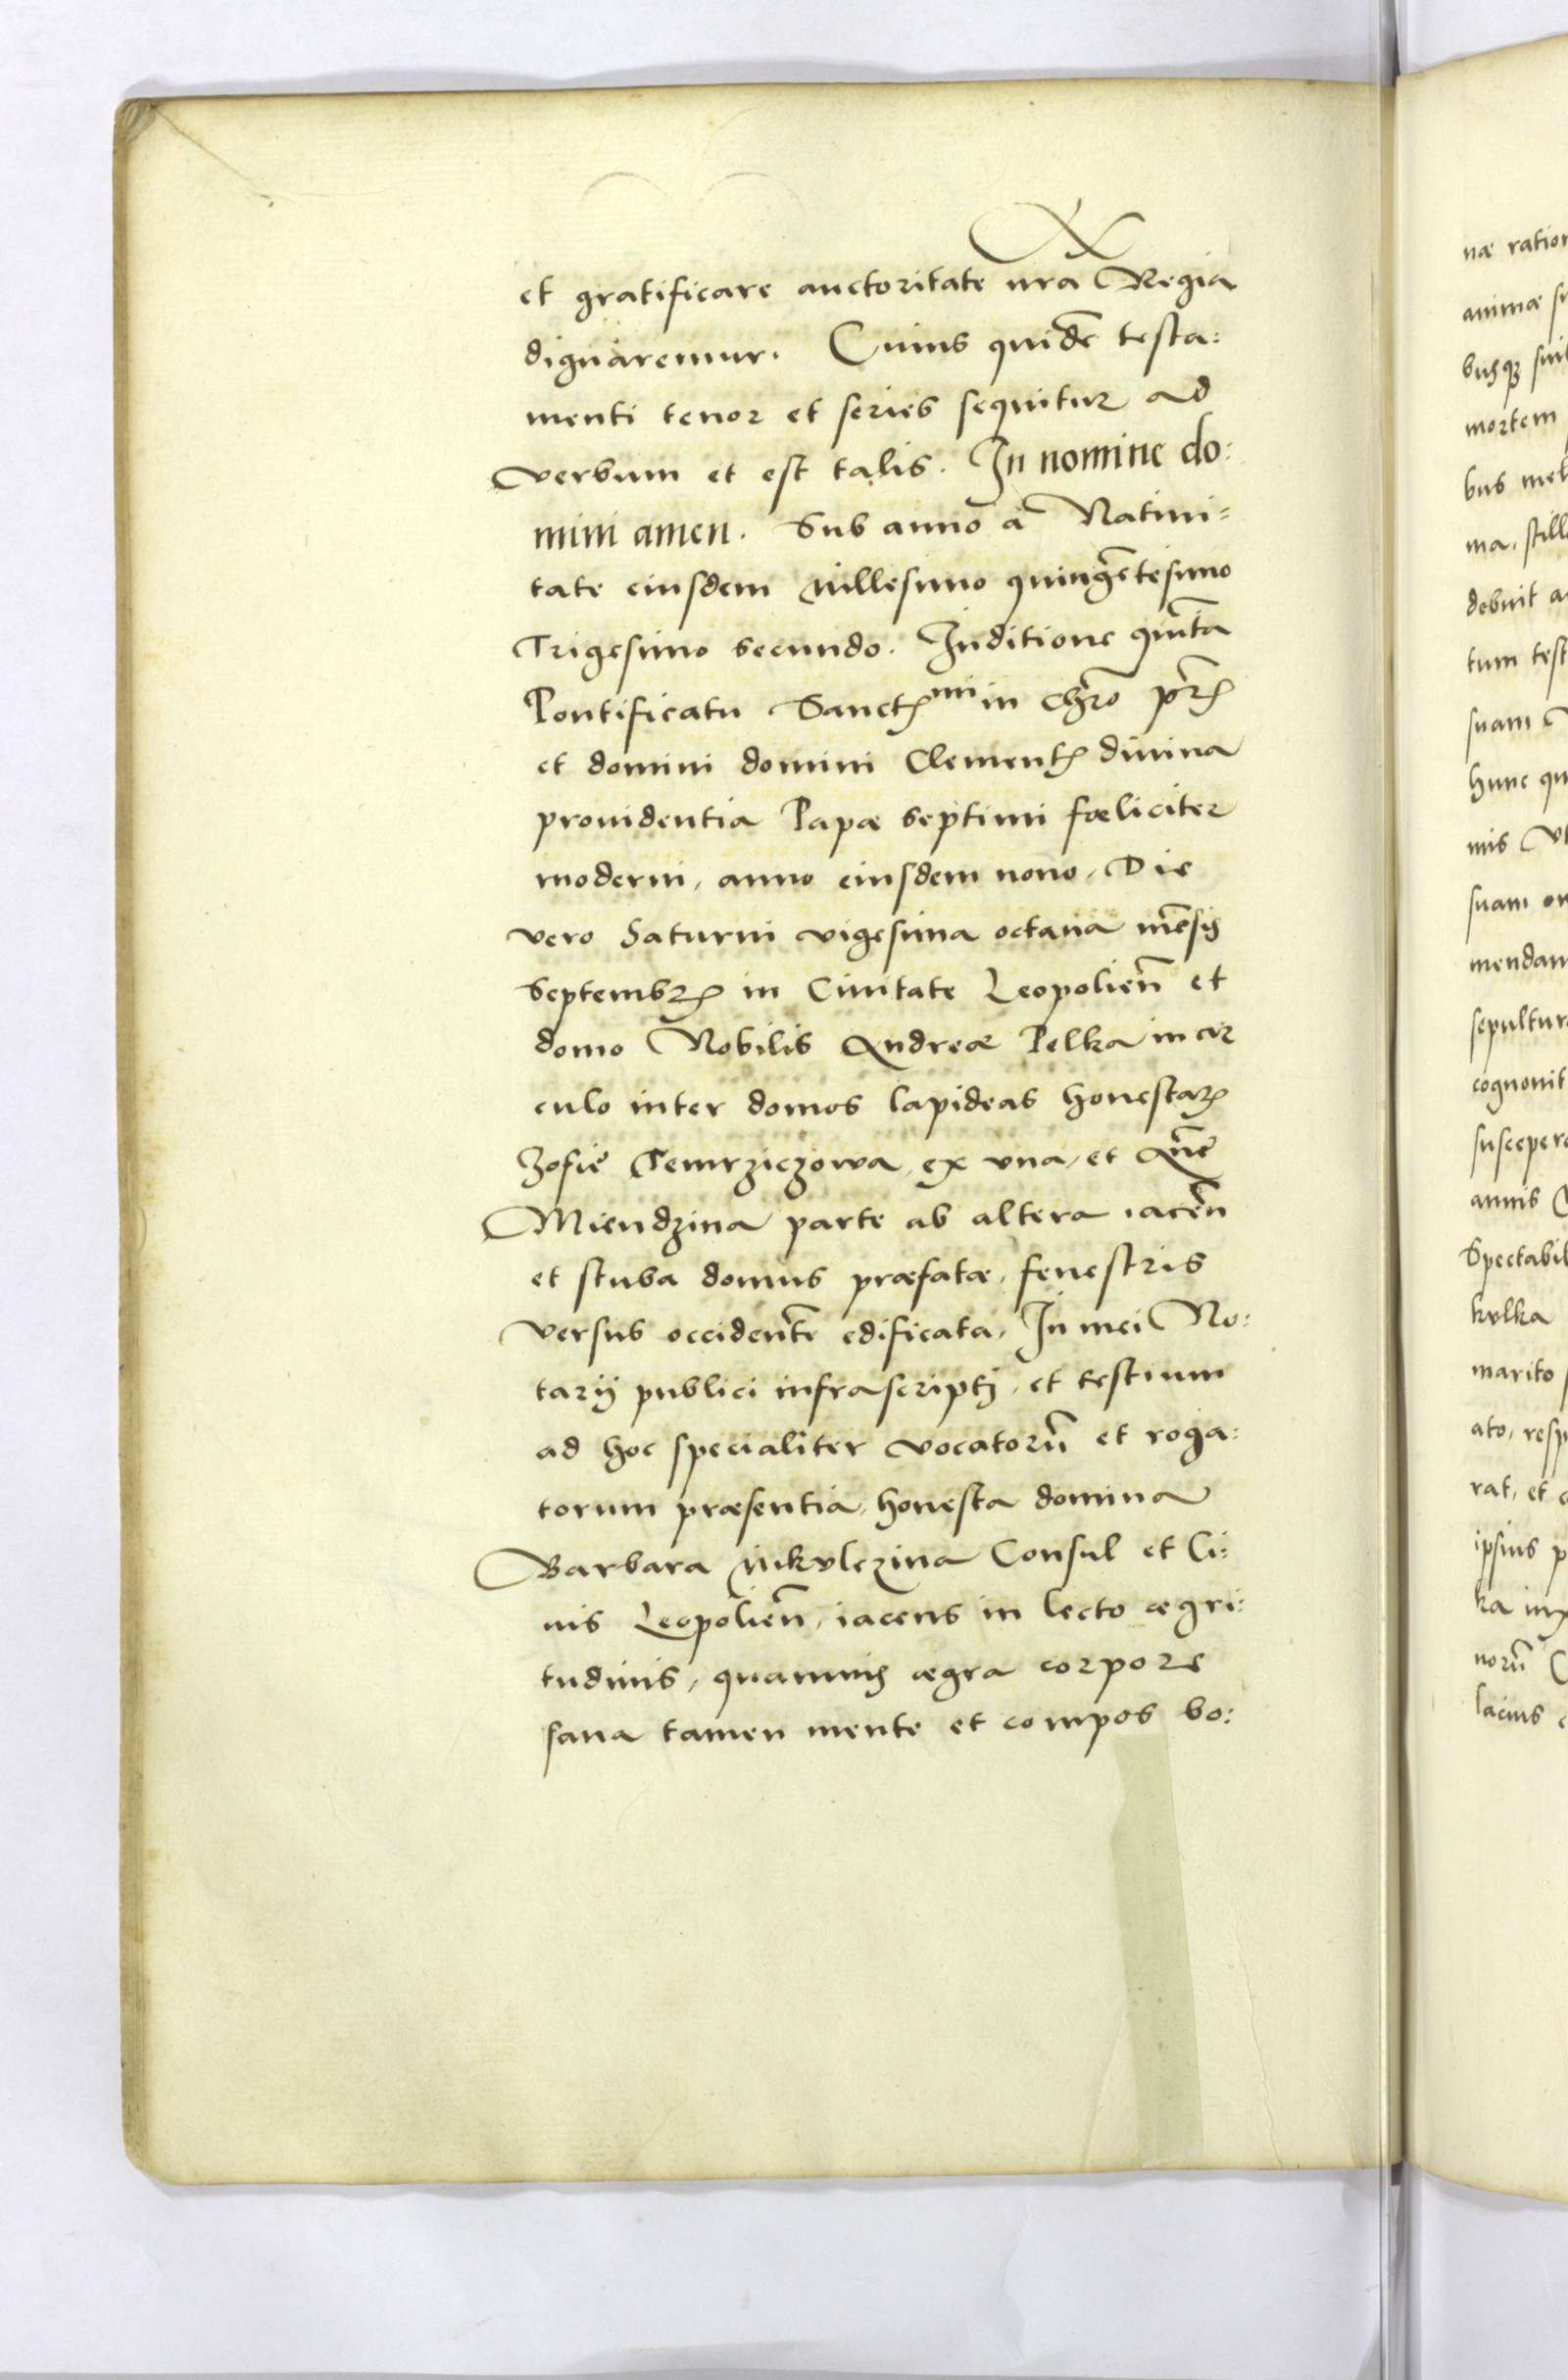 et gratificare auctoritate nr̃a Regia
dignaremur. Cuius quidẽ testa:
menti tenor et series sequitur ad
verbum et est talis. In nomine do:
mini amen. Sub anno à Natiui=
tate eiusdem Millesimo quingẽtesimo
Trigesimo secundo. Inditione quĩta
Pontificatu Sanctꝭmi in chr̃o pr̃ꝭ
et domini domini Clementꝭ diuina
prouidentia Papæ septimi fœliciter
moderni, anno eiusdem nono, Die
vero Saturni vigesima octaua mẽsis
Septembrꝭ in Ciuitate Leopolieñ et
domo Nobilis Andreæ Pelka in cir
culo inter domos lapideas honestarꝭ
Zofie ex vna, et Añe
Miendzina parte ab altera iaceñ
et stuba domus præfatæ, fenestris
versus occidentẽ edificata, In mei No:
tarij publici infrascripti, et testium
ad hoc specialiter vocatorũ et roga:
torum præsentia, honesta domina
Barbara Mikvlczina Consul et Ci:
uis Leopolieñ, iacens in lecto ægri:
tudinis, quamuis ægra corpore
sana tamen mente et compos bo:
næ ratio
animæ
busqꝫ
mortem
bus
ma,
debuit
tum test
suam
hunc
mis
suam
mendam
sepultur
cognouit
susceper
annis
Spectabil
kvlka
marito
ato, resp
rat, et
ipsius
ka
norũ
lacius